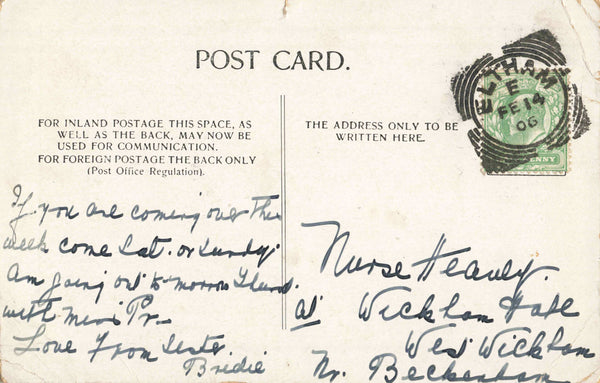 POST CARD.
ELTHAM
E
FE 14
06
NNY
FOR INLAND POSTAGE THIS SPACE, AS
WELL AS THE BACK, MAY NOW BE
USED FOR COMMUNICATION.
FOR FOREIGN POSTAGE THE BACK ONLY
(Post Office Regulation).
THE ADDRESS ONLY TO BE
WRITTEN HERE.
If you are coming over this
week come Sat. or Sunday.
Am going out to-morrow Thurs.
with
Love From Sister
Bridie
Nurse
at Wickham Hall
West Wickham
Nr. Beckenham